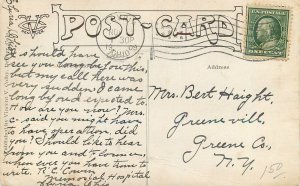 POST-CARD
Address
I should have
see you long before this,
but my call here was
very sudden. I came
as I had expected to.
How are you now? Mrs.
C. said you might have
to have operation, did
you? Should like to hear
from you and Florence,
when ever you have time to
write. R. C. Cowen
Memorial Hospital
Elyria Ohio
Mrs. Bert Haight,
Greenvill,
Greene Co,
N.Y.
150